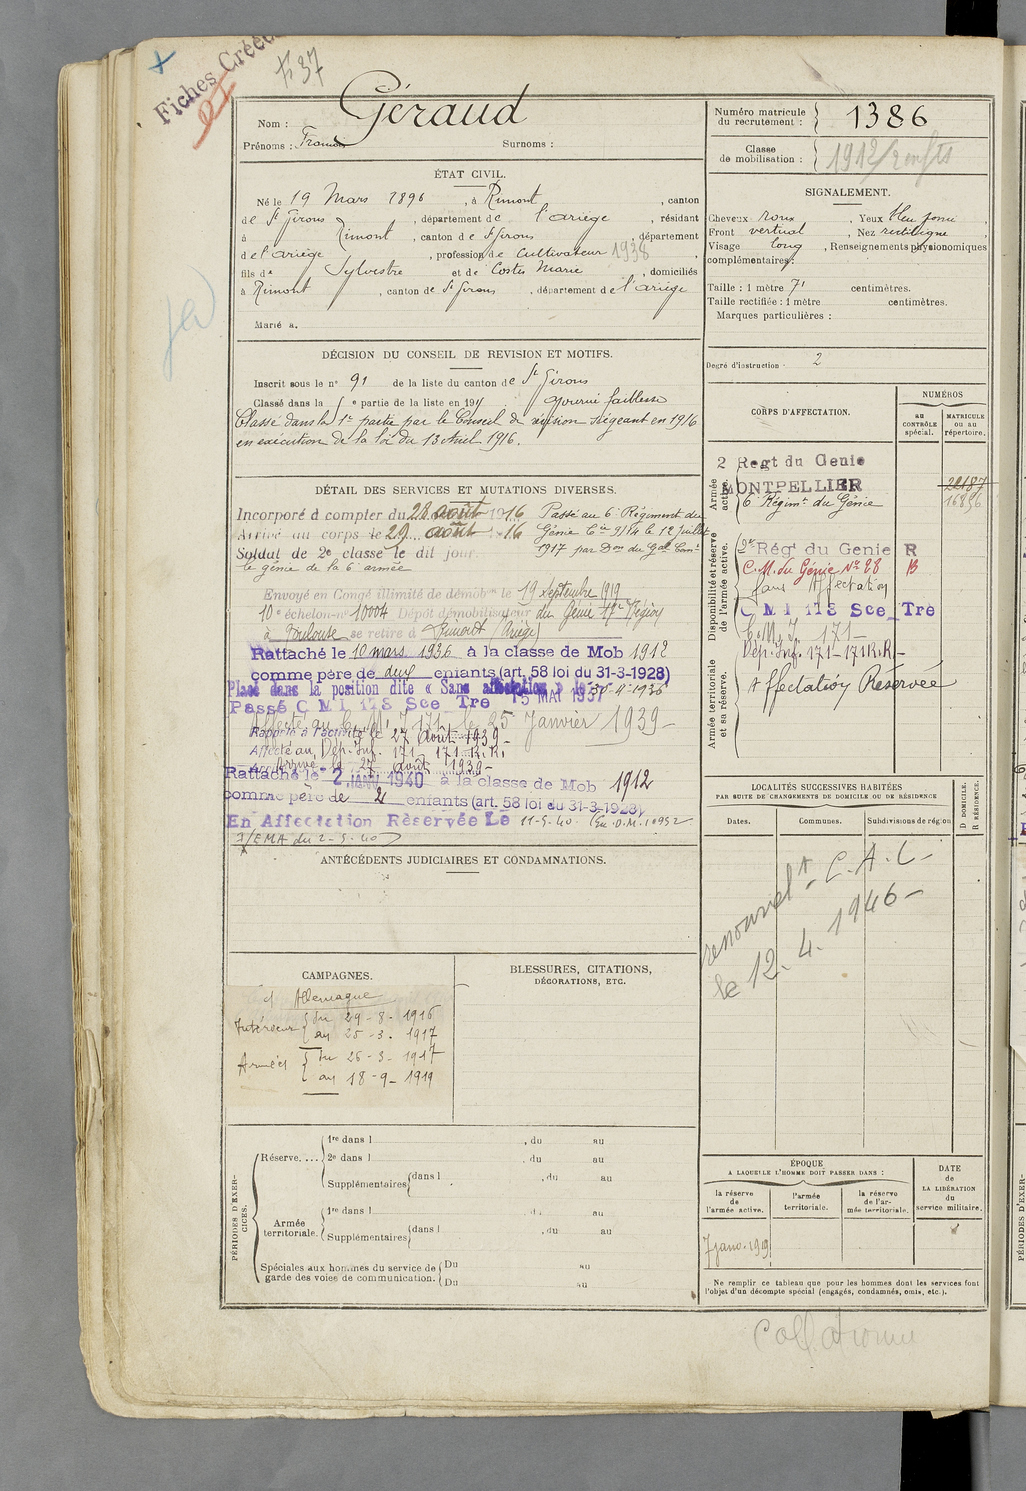 Fiches Créées
F 37
Géraud
Nom :
Prénoms : François
Surnoms :
Numéro matricule du recrutement : 1386
Classe de mobilisation : 1912/2 enfts
ÉTAT CIVIL.
Né le 19 Mars 1896, à Rimont, canton
de St Girons, département de l'ariège, résidant
à Rimont, canton de St Girons, département
de l'ariège, profession de cultivateur 1938
fils de Sylvestre et de Costes Marie, domiciliés
à Rimont, canton de St Girons, département de l'ariège
Marié à
SIGNALEMENT.
Cheveux roux, Yeux bleu foncé,
Front vertical, Nez rectiligne,
Visage long, Renseignements physionomiques
complémentaires :
Taille : 1 mètre 71 centimètres.
Taille rectifiée : 1 mètre centimètres.
Marques particulières :
Degré d'instruction : 2
DÉCISION DU CONSEIL DE REVISION ET MOTIFS.
Inscrit sous le n° 91 de la liste du canton de St Girons
Classé dans la 5e partie de la liste en 191 ajourné faiblesse
Classé dans la 1re partie par le Conseil de révision siégeant en 1916
en exécution de la loi du 13 Avril 1916.
DÉTAIL DES SERVICES ET MUTATIONS DIVERSES.
Incorporé à compter du 28 août 1916
Arrivé au corps le 29 août 1916
Soldat de 2e classe le dit jour.
Passé au 6e Régiment du
Génie Cie 9/14 le 12 juillet
1917 par Don du Gal Comt
le génie de la 6e armée
Envoyé en Congé illimité de démobon le 19 septembre 1919
10e échelon n° 10004 Dépôt démobilisateur du Génie 17e Région
à Toulouse se retire à Rimont (Ariège)
Rattaché le 10 mars 1936 à la classe de Mob 1912
comme père de deux enfants (art. 58 loi du 31-3-1928)
Placé dans la position dite « Sans affectation » le 30-4-1936
Passé C M I 178 Sce Tre 15 MAI 1937
Affecté au C. M. I 171 le 25 Janvier 1939-
Rappelé à l'activité le 27 août 1939-
Affecté au Dép. Inf. 171 - 171 R.R.
Arrivé le 27 août 1939-
Rattaché le 2 JANV 1940 à la classe de Mob 1912
comme père de 2 enfants (art. 58 loi du 31-3-1928)
En Affectation Réservée Le 11-5-40 (En. D.M. 10952
I/EMA du 2-5-40)
CORPS D'AFFECTATION.
NUMÉROS
au CONTRÔLE spécial.
MATRICULE ou au répertoire.
Armée active.
2 Regt du Genie
MONTPELLIER
22187
6e Régimt du Génie
16856
Disponibilité et réserve de l'armée active.
2e Rég du Genie R
C.M. du Génie No 28 B
sans Affectation
C M I 178 Sce Tre
C. M. I. 171-
Dép. Inf. 171-171 R.R-
Armée territoriale et sa réserve.
Affectation Réservée
LOCALITÉS SUCCESSIVES HABITÉES
PAR SUITE DE CHANGEMENTS DE DOMICILE OU DE RÉSIDENCE
Dates.
Communes.
Subdivisions de région
D DOMICILE.
R RÉSIDENCE.
C.A.C-
le 12.4.1946-
ANTÉCÉDENTS JUDICIAIRES ET CONDAMNATIONS.
CAMPAGNES.
d'Allemagne
Intérieur du 29-8-1916
au 25-3-1917
Armées du 26-3-1917
au 18-9-1919
BLESSURES, CITATIONS,
DÉCORATIONS, ETC.
PÉRIODES D'EXERCICES.
Réserve....
1re dans l , du au
2e dans l , du au
Supplémentaires dans l , du au
Armée territoriale.
1re dans l , du au
Supplémentaires dans l , du au
Spéciales aux hommes du service de garde des voies de communication.
Du au
Du au
ÉPOQUE
A LAQUELLE L'HOMME DOIT PASSER DANS :
la réserve de l'armée active.
l'armée territoriale.
la réserve de l'armée territoriale.
DATE de LA LIBÉRATION du service militaire.
7 janv. 1919
Ne remplir ce tableau que pour les hommes dont les services font
l'objet d'un décompte spécial (engagés, condamnés, omis, etc.).
Collationné
PÉRIODES D'EXER-